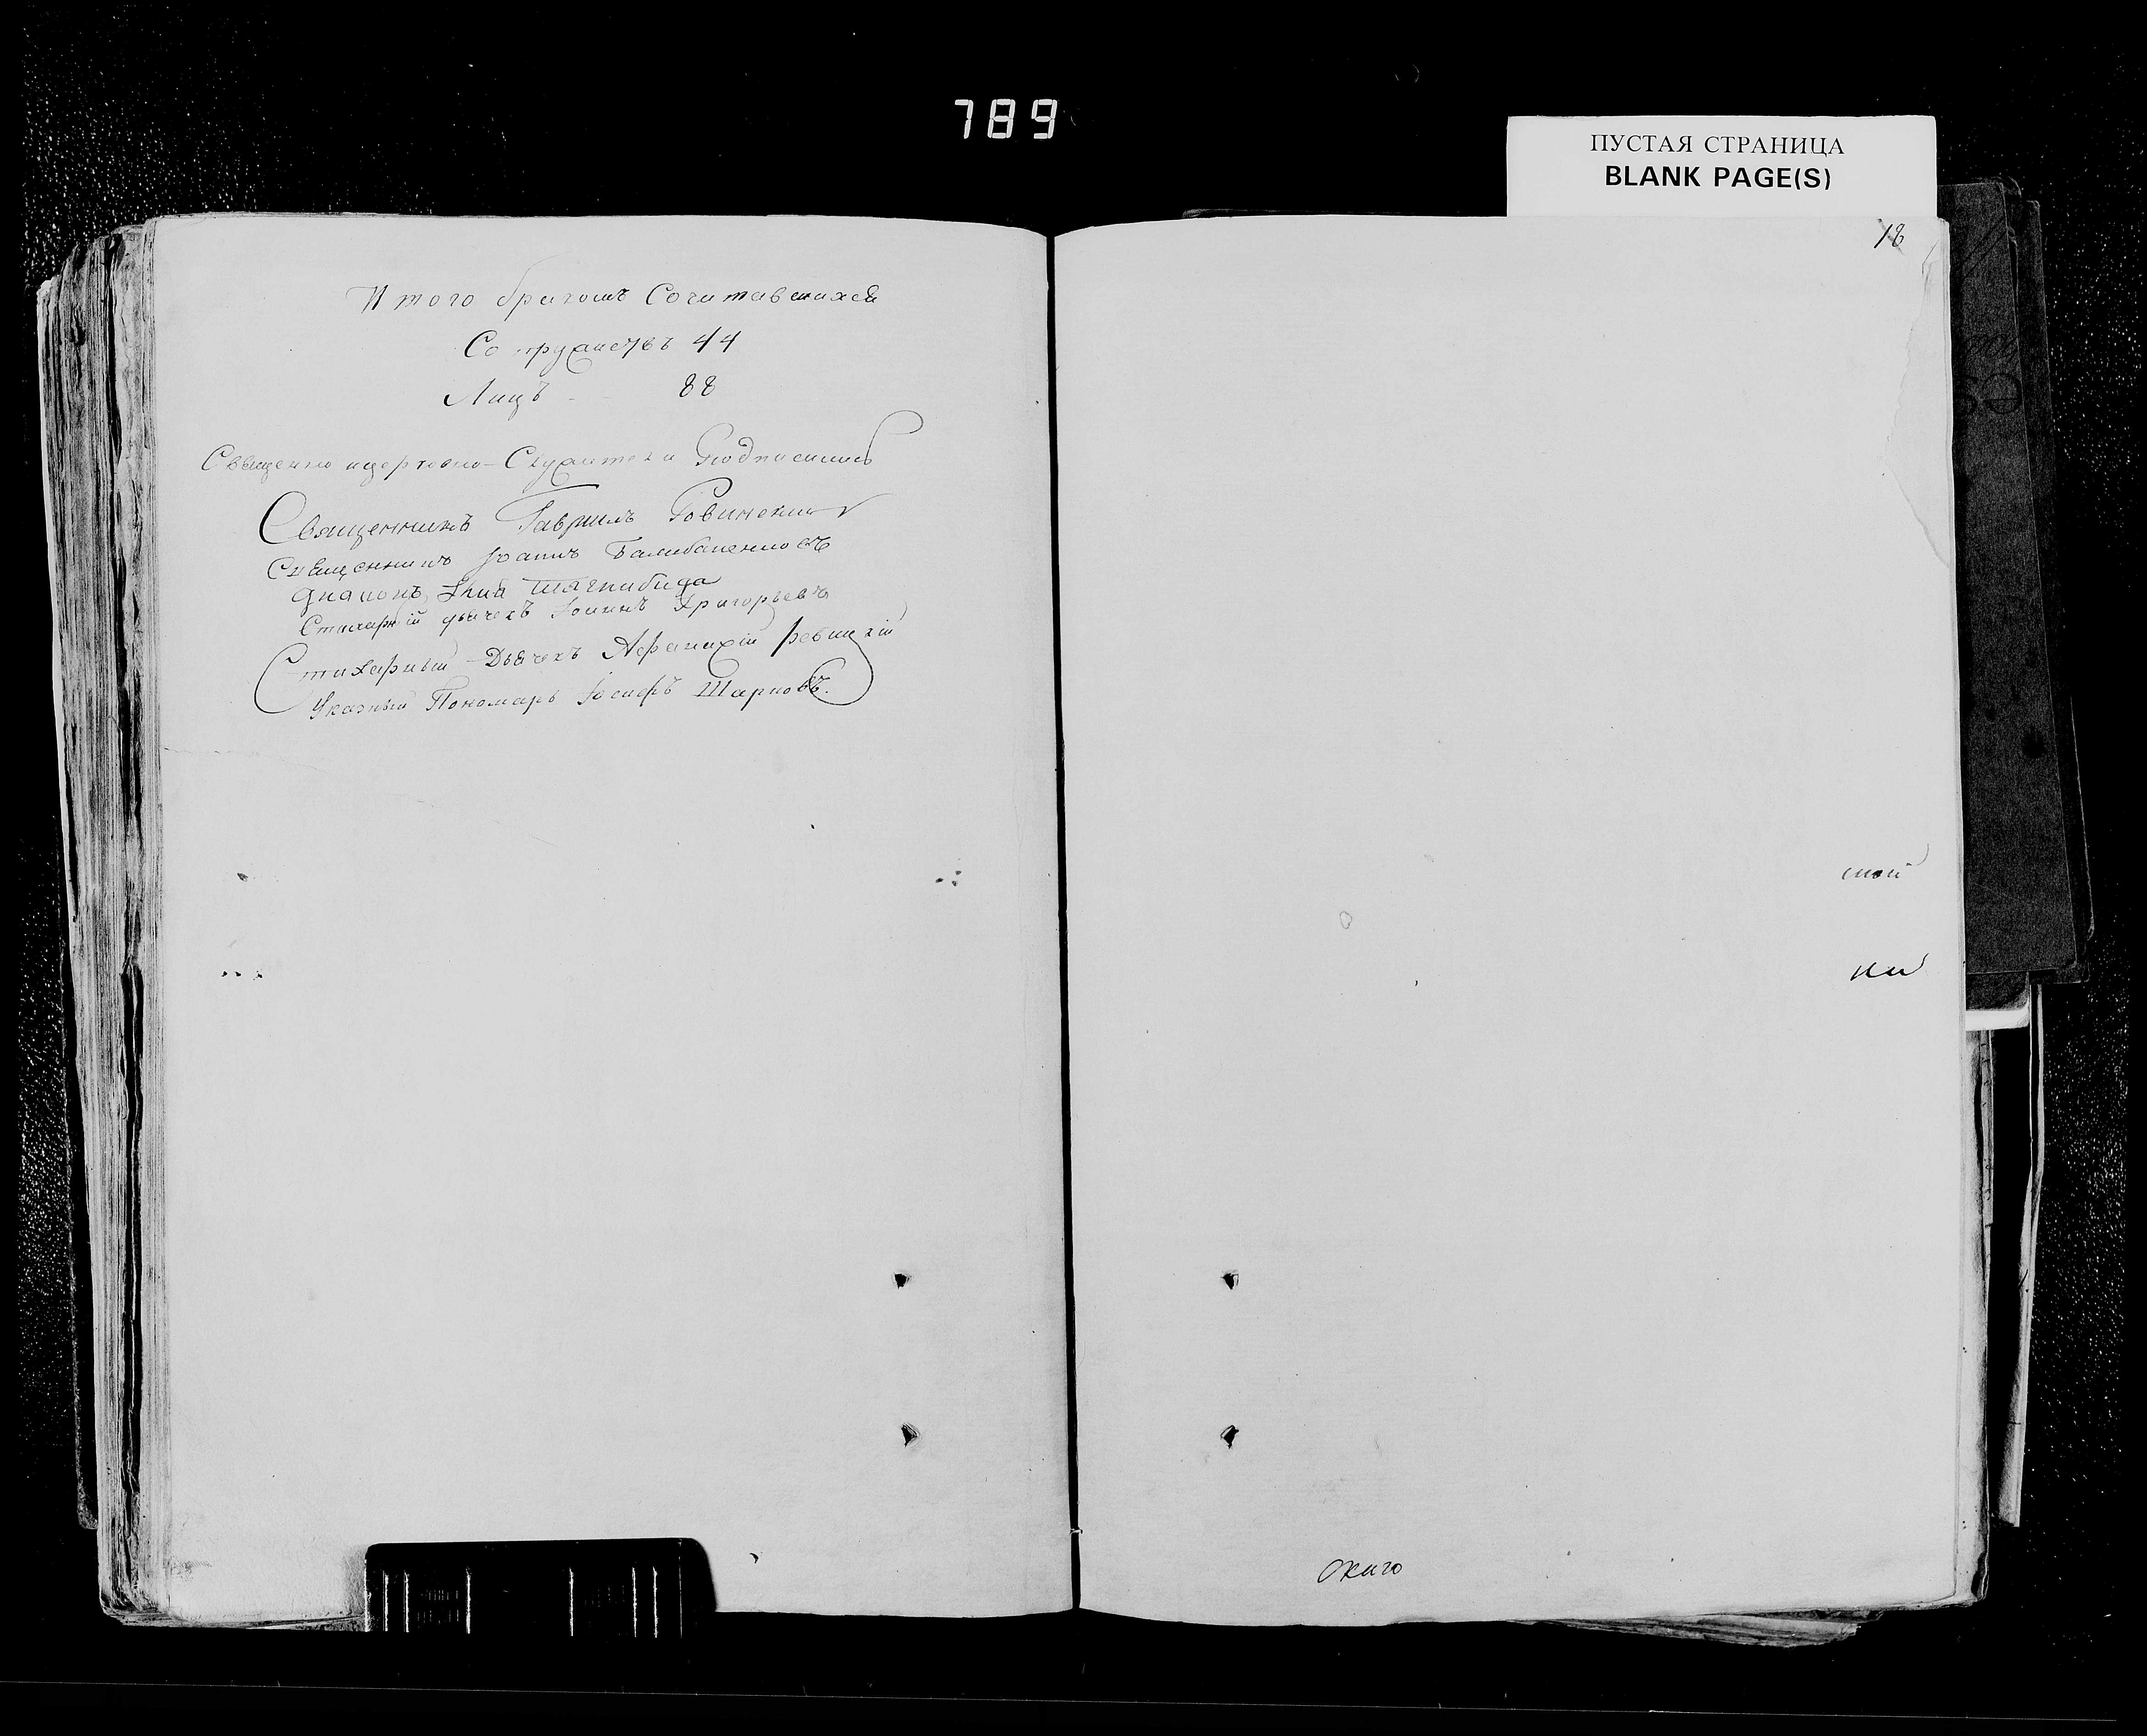 789
ПУСТАЯ СТРАНИЦА
BLANK PAGE(S)
18
Итого бракомъ Сочитавшихся
Сопружествъ 44
Лицъ 88
Священно ицерковно-Служители Подписались
Священникъ Гавриилъ Ровинский
Священникъ Іоаннъ
Стихарній дьячекъ Іоаннъ Григорьевъ
Стихарный Дьячекъ Афанасій
Указный Пономарь Іосифъ Шарповъ.
ской
ки